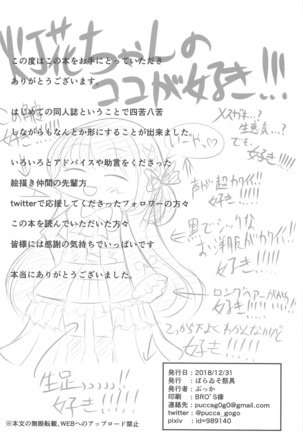 ココが好き!!!
この度はこの本をお手にとっていただき
ありがとうございます。
はじめての同人誌ということで四苦八苦
しながらもなんとか形にすることが出来ました。
いろいろとアドバイスや助言をくださった
絵描き仲間の先輩方
twitterで応援してくださったフォロワーの方々
この本を読んでいただいた方々
皆様には感謝の気持ちでいっぱいです
本当にありがとうございました。
でも、
好き!!!
声が超カワイイ!!
好き!!!
黒でシックな
お洋服がカワイイ!!
好き!!!
ロングヘアーがカワイイ
好き!!!
好き!!!
生足!!!
好き!!!
発行日：2018/12/31
発行：ばらゐそ祭具
発行者：ぷっか
印刷：BRO'S様
連絡先：puccag0g0@gmail.com
twitter：@pucca_gogo
pixiv：id=989140
※本文の無断転載、WEBへのアップロード禁止